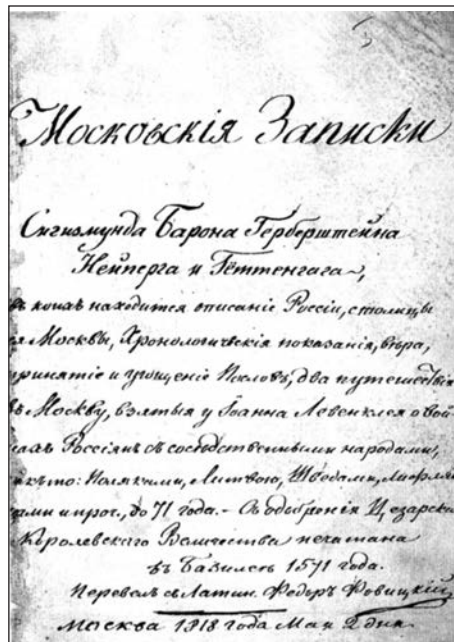 Московскія Записки
Сигизмунда Барона Герберштейна
Нейперга и Геттенгага,
въ коихъ находится описаніе Россіи, столицы
ея Москвы, Хронологическія показанія, вѣра,
принятіе и угощеніе Пословъ, два путешествія
въ Москву, взятыя у Іоанна Левенклея о вой
нахъ Россіянъ съ сосѣдственными народами,
Поляками, Литвою, Шведами,
и проч., до 71 года. – Съ одобренія Цезарско
Королевскаго Величества печатана
въ Базилеѣ 1571 года.
Перевелъ съ Латин. Федоръ Фовицкій
Москва 1818 года Мая 2 дня